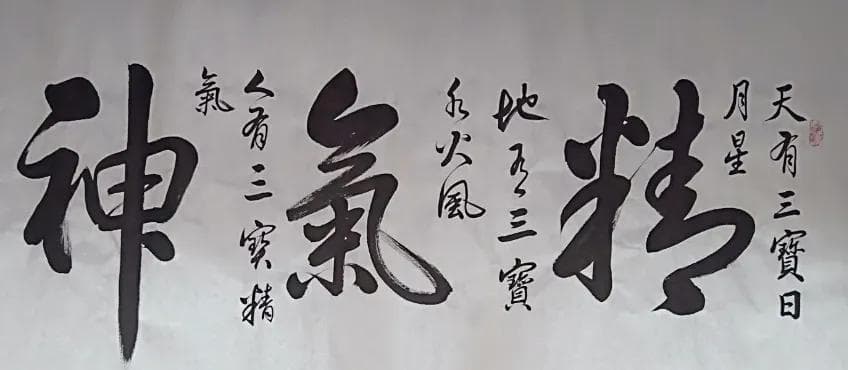 天有三寶日
月星
精
地有三寶
水火風
氣
人有三寶精
氣
神